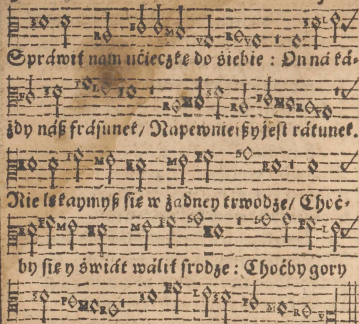 Spráwił nam ućieczkę do śiebie : On na ká-
żdy náß frásunek/ Napewnieißy jest rátunek.
Nie lękaymyß śię w żadney trwodze/ Choć-
by się y świát wálił srodze : Choćby gory